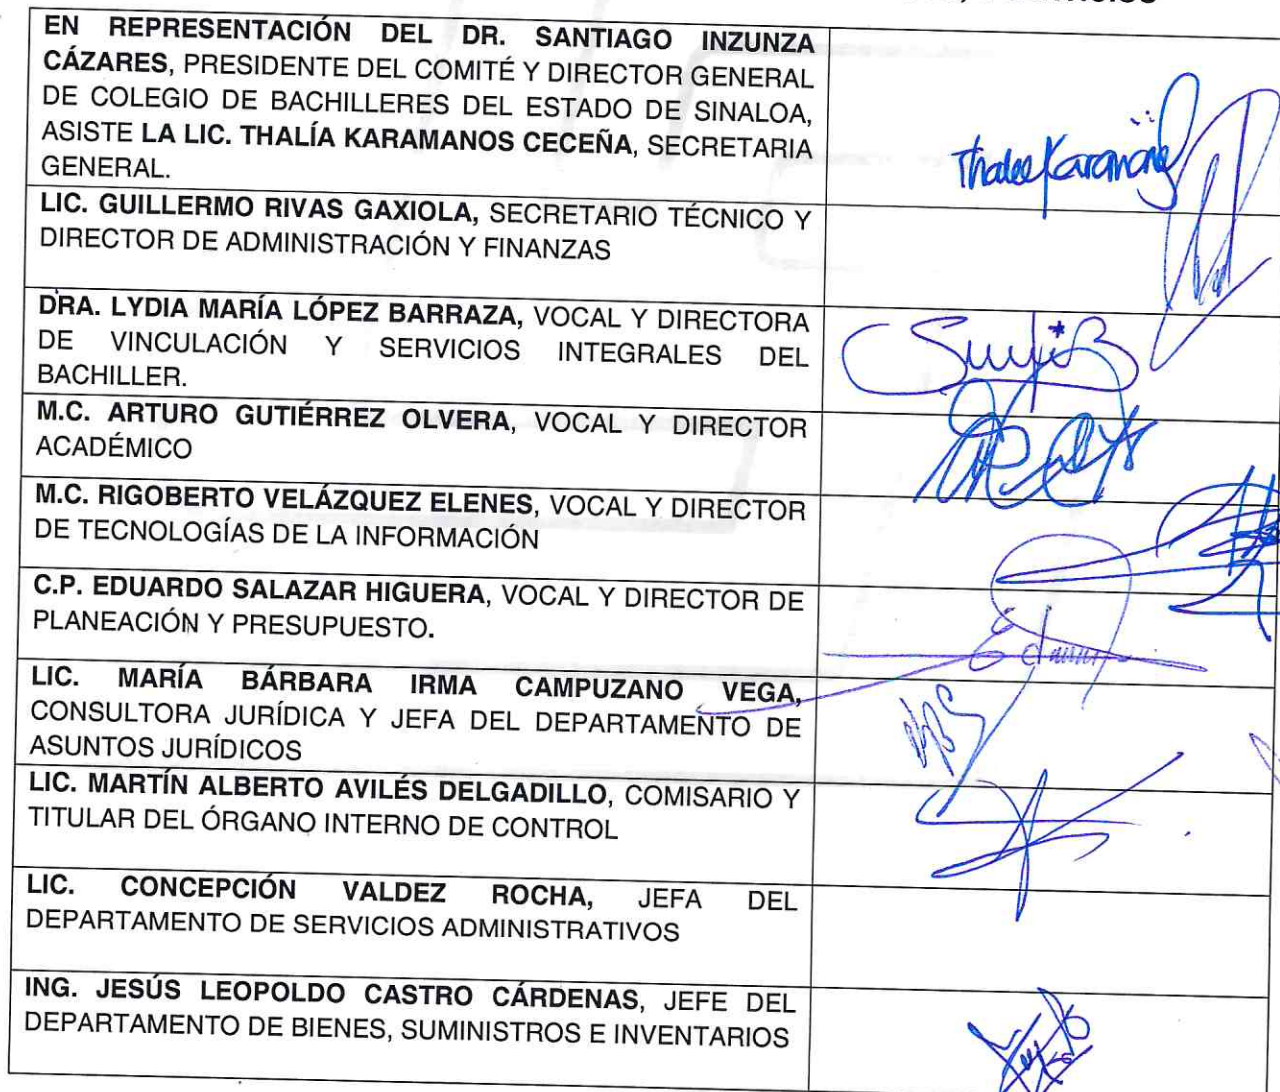 EN REPRESENTACIÓN DEL DR. SANTIAGO INZUNZA
CÁZARES, PRESIDENTE DEL COMITÉ Y DIRECTOR GENERAL
DE COLEGIO DE BACHILLERES DEL ESTADO DE SINALOA,
ASISTE LA LIC. THALÍA KARAMANOS CECEÑA, SECRETARIA
GENERAL.
LIC. GUILLERMO RIVAS GAXIOLA, SECRETARIO TÉCNICO Y
DIRECTOR DE ADMINISTRACIÓN Y FINANZAS
DRA. LYDIA MARÍA LÓPEZ BARRAZA, VOCAL Y DIRECTORA
DE VINCULACIÓN Y SERVICIOS INTEGRALES DEL
BACHILLER.
M.C. ARTURO GUTIÉRREZ OLVERA, VOCAL Y DIRECTOR
ACADÉMICO
M.C. RIGOBERTO VELÁZQUEZ ELENES, VOCAL Y DIRECTOR
DE TECNOLOGÍAS DE LA INFORMACIÓN
C.P. EDUARDO SALAZAR HIGUERA, VOCAL Y DIRECTOR DE
PLANEACIÓN Y PRESUPUESTO.
LIC. MARÍA BÁRBARA IRMA CAMPUZANO VEGA,
CONSULTORA JURÍDICA Y JEFA DEL DEPARTAMENTO DE
ASUNTOS JURÍDICOS
LIC. MARTÍN ALBERTO AVILÉS DELGADILLO, COMISARIO Y
TITULAR DEL ÓRGANO INTERNO DE CONTROL
LIC. CONCEPCIÓN VALDEZ ROCHA, JEFA DEL
DEPARTAMENTO DE SERVICIOS ADMINISTRATIVOS
ING. JESÚS LEOPOLDO CASTRO CÁRDENAS, JEFE DEL
DEPARTAMENTO DE BIENES, SUMINISTROS E INVENTARIOS